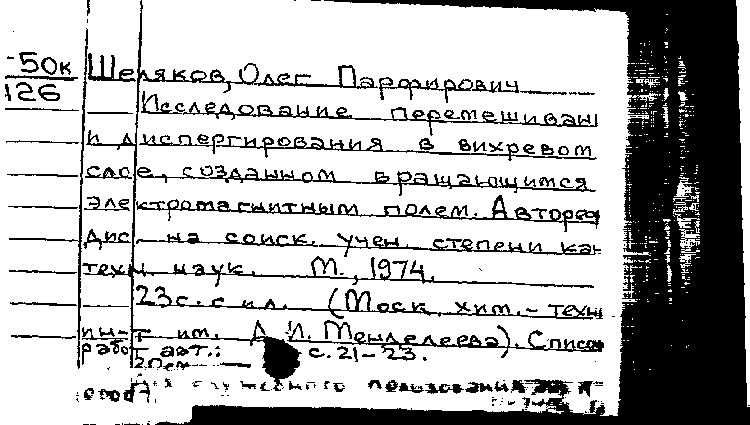 -50к Шеляков, Олег Парфирович
126
Исследование перемешиван
и диспергирования в вихревом
слое, созданном вращающимся
электромагнитным полем. Автореф
дис. на соиск. учен. степени кан
техн. наук. М., 1974.
23с. с ил. (Моск. хим.-техн
ин-т им. Д.И. Менделеева). Список
работ авт.: с. 21-23.
Для служебного пользования